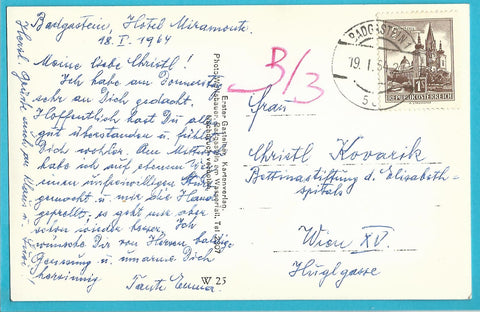 Badgastein, Hotel Miramonte
18. I. 1964
Meine liebe Christl!
Ich habe am Donnerstag
sehr an Dich gedacht,
Hoffentlich hast Du alles
gut überstanden u. fühlst
Dich wohler. Am Mittwoch
habe ich auf ebenem Wege
einen unfreiwilligen Sturz
gemacht u. mir die Hand
geprellt, es geht mir aber
schon wieder besser. Ich
wünsche Dir von Herzen baldige
Genesung u. umarme Dich
herzinnig Tante Emma
Herzl. Grüße auch an Mama u.
Erster Gasteiner Kartenverlag,
am Wasserfall, Tel.
W 25
B/3
BADGASTEIN 1
19. I.
REPUBLIK ÖSTERREICH
Frau
Christl Kovarik
Bettinastiftung d. Elisabeth-
spitals
Wien XV.
Huglgasse